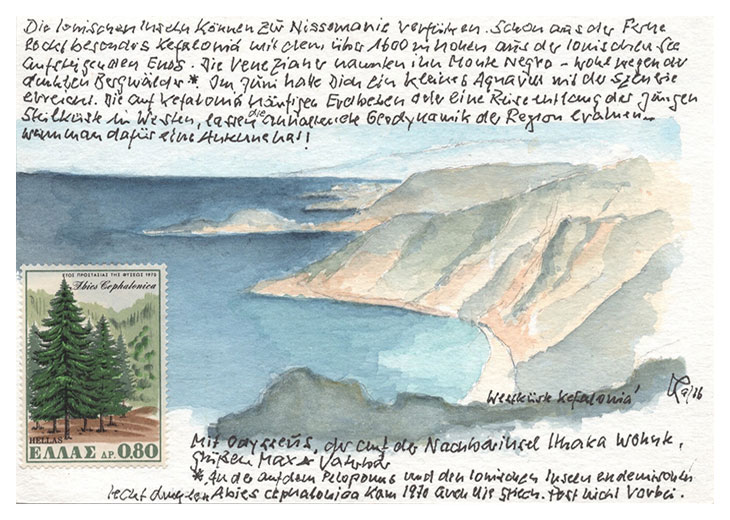 Die Ionischen Inseln können zur Nissomanie verführen. Schon aus der Ferne
lockt besonders Kefaloniá mit dem über 1600 m hohen aus der Ionischen See
aufsteigenden Enos. Die Venezianer nannten ihn Monte Negro – wohl wegen der
dunklen Bergwälder*. Im Juni hatte Dich ein kleines Aquarell mit der Szenerie
erreicht. Die auf Kefaloniá häufigen Erdbeben oder eine Reise entlang der jungen
Steilküste im Westen, lassen die anhaltende Geodynamik der Region erahnen –
wenn man dafür eine Antenne hat!
ΕΤΟΣ ΠΡΟΣΤΑΣΙΑΣ ΤΗΣ ΦΥΣΕΩΣ 1970
Abies Cephalonica
HELLAS
ΕΛΛΑΣ ΔΡ. 0.80
Westküste Kefaloniá
9/16
Mit Odysseus, der auf der Nachbarinsel Ithaka wohnte,
grüßen Max
* An der auf dem Peloponnes und den Ionischen Inseln endemischen
Abies cephalonica kam 1970 auch die griech. Post nicht vorbei.